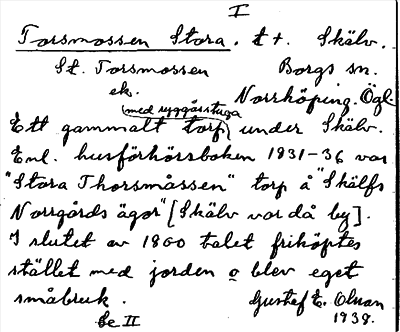 I
Torsmossen Stora. t +. Skälv.
St. Torsmossen Borgs sn.
ek. Norrköping. Ögl.
(med ryggåsstuga)
Ett gammalt torp under Skälv.
Enl. husförhörsboken 1831-36 var
"Stora Thorsmåssen" torp å "Skälfs
Norrgårds ägor" [Skälv var då by].
I slutet av 1800 talet friköptes
stället med jorden o blev eget
småbruk. Gustaf E. Olsson
Se II 1938.